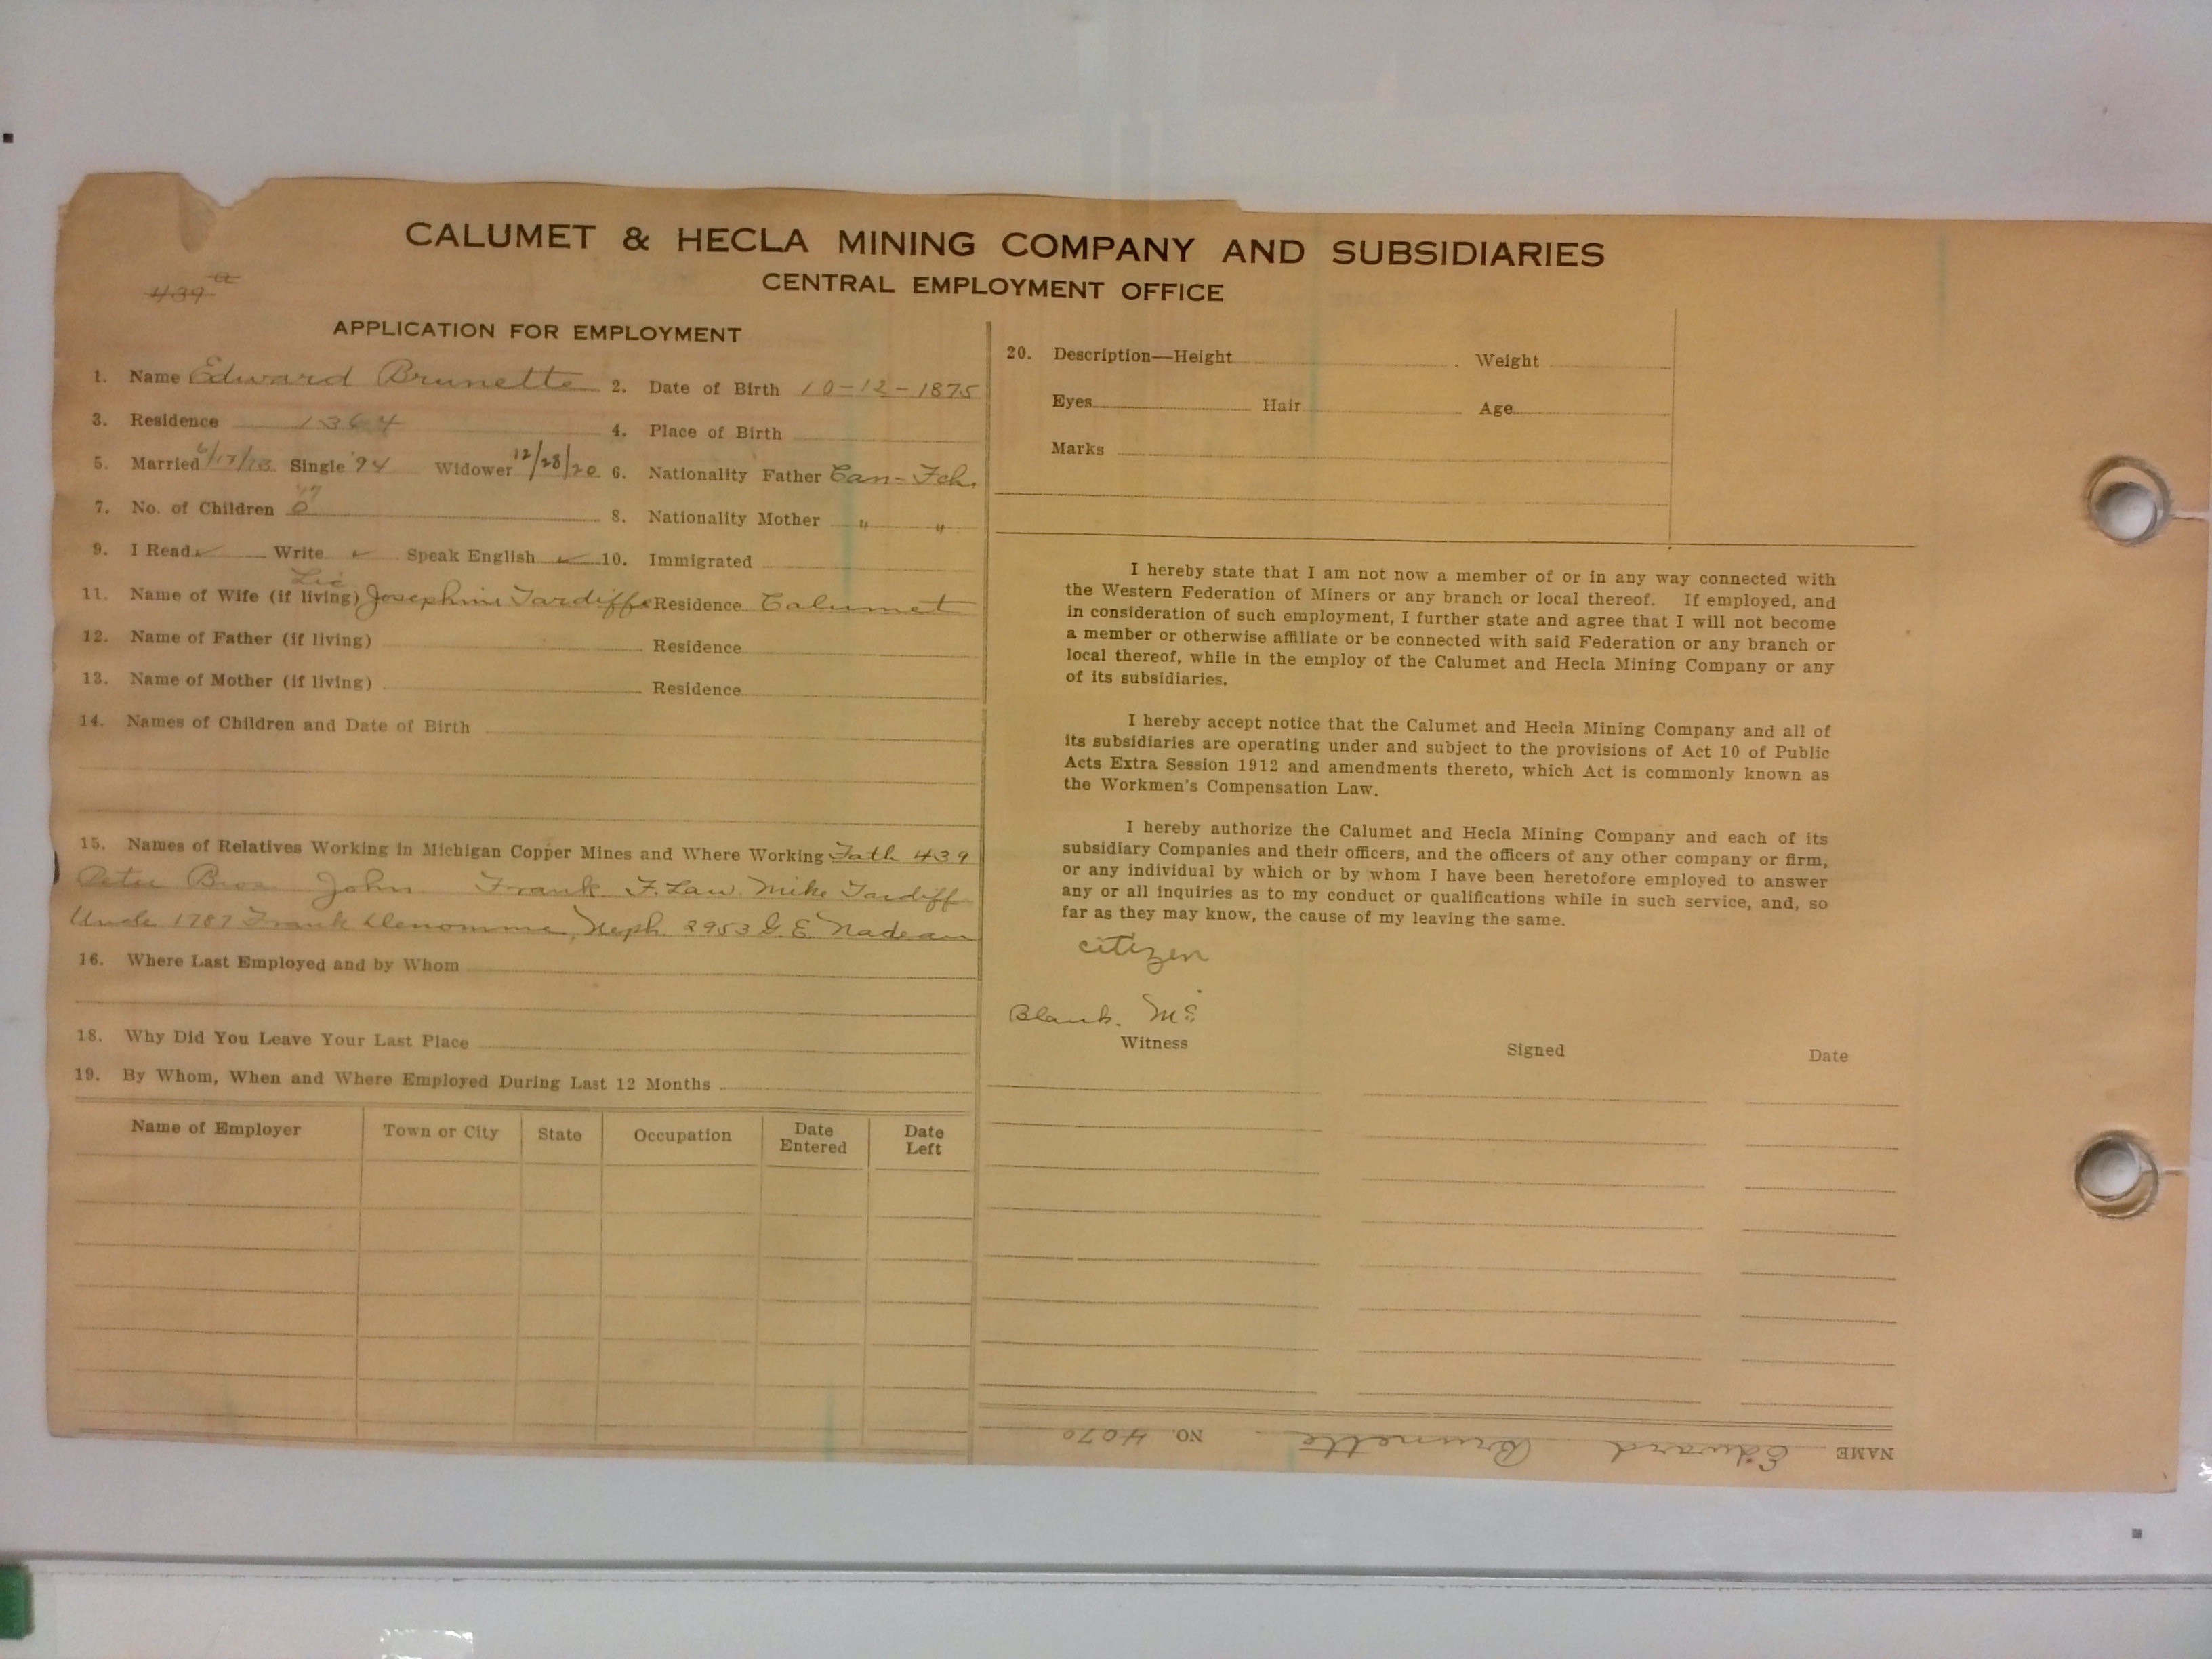 CALUMET & HECLA MINING COMPANY AND SUBSIDIARIES
CENTRAL EMPLOYMENT OFFICE
439 a
APPLICATION FOR EMPLOYMENT
1. Name Edward Brunette 2. Date of Birth 10-12-1875
3. Residence 1364 4. Place of Birth
5. Married Single '94 Widower 12/28/20 6. Nationality Father Can-Fch.
7. No. of Children 0 8. Nationality Mother " "
9. I Read ✓ Write ✓ Speak English ✓ 10. Immigrated
11. Name of Wife (if living) Josephine Tardiffe Residence Calumet
12. Name of Father (if living) Residence
13. Name of Mother (if living) Residence
14. Names of Children and Date of Birth
15. Names of Relatives Working in Michigan Copper Mines and Where Working Fath 439
Peter Bros John Frank F. Law. Mike Tardiff
Uncle 1787 Frank Denomme, Neph. 2953 G. E. Nadeau
16. Where Last Employed and by Whom
18. Why Did You Leave Your Last Place
19. By Whom, When and Where Employed During Last 12 Months
Name of Employer Town or City State Occupation Date Entered Date Left
20. Description—Height Weight
Eyes Hair Age
Marks
I hereby state that I am not now a member of or in any way connected with
the Western Federation of Miners or any branch or local thereof. If employed, and
in consideration of such employment, I further state and agree that I will not become
a member or otherwise affiliate or be connected with said Federation or any branch or
local thereof, while in the employ of the Calumet and Hecla Mining Company or any
of its subsidiaries.
I hereby accept notice that the Calumet and Hecla Mining Company and all of
its subsidiaries are operating under and subject to the provisions of Act 10 of Public
Acts Extra Session 1912 and amendments thereto, which Act is commonly known as
the Workmen's Compensation Law.
I hereby authorize the Calumet and Hecla Mining Company and each of its
subsidiary Companies and their officers, and the officers of any other company or firm,
or any individual by which or by whom I have been heretofore employed to answer
any or all inquiries as to my conduct or qualifications while in such service, and, so
far as they may know, the cause of my leaving the same.
citizen
Blank.
Witness Signed Date
NAME Edward Brunette NO. 4070